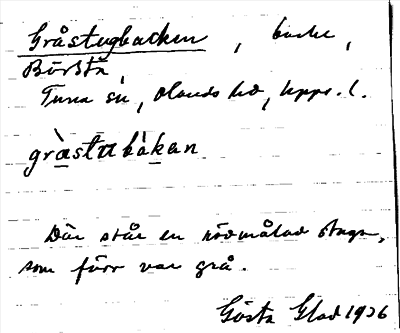 Gråstugbacken, backe,
Börsta,
Tuna sn, Olands hd, Upps. l.
gràstubàkan
Där står en rödmålad stuga,
som förr var grå.
Gösta Glad 1936